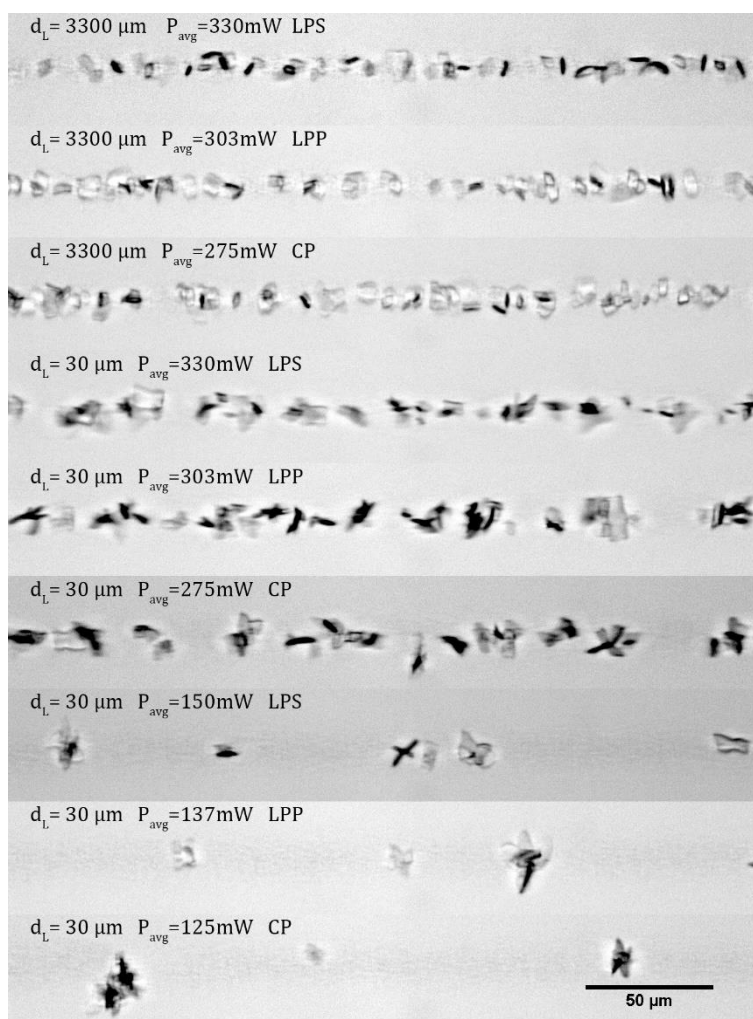 d_L= 3300 μm P_avg=330mW LPS
d_L= 3300 μm P_avg=303mW LPP
d_L= 3300 μm P_avg=275mW CP
d_L= 30 μm P_avg=330mW LPS
d_L= 30 μm P_avg=303mW LPP
d_L= 30 μm P_avg=275mW CP
d_L= 30 μm P_avg=150mW LPS
d_L= 30 μm P_avg=137mW LPP
d_L= 30 μm P_avg=125mW CP
50 μm